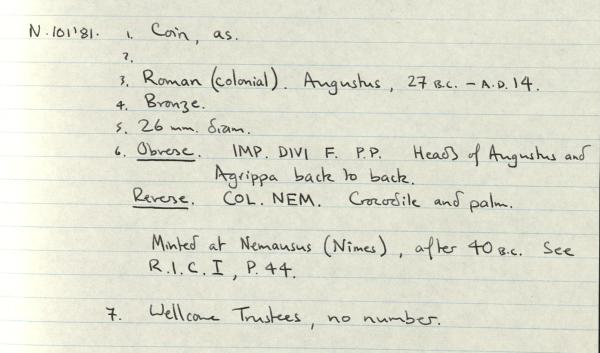 N.101'81. 1. Coin, as.
2.
3. Roman (colonial). Augustus, 27 B.C. – A.D. 14.
4. Bronze.
5. 26 mm. diam.
6. Obverse. IMP. DIVI F. P.P. Heads of Augustus and
Agrippa back to back.
Reverse. COL. NEM. Crocodile and palm.
Minted at Nemausus (Nimes), after 40 B.C. See
R.I.C. I, P. 44.
7. Wellcome Trustees, no number.